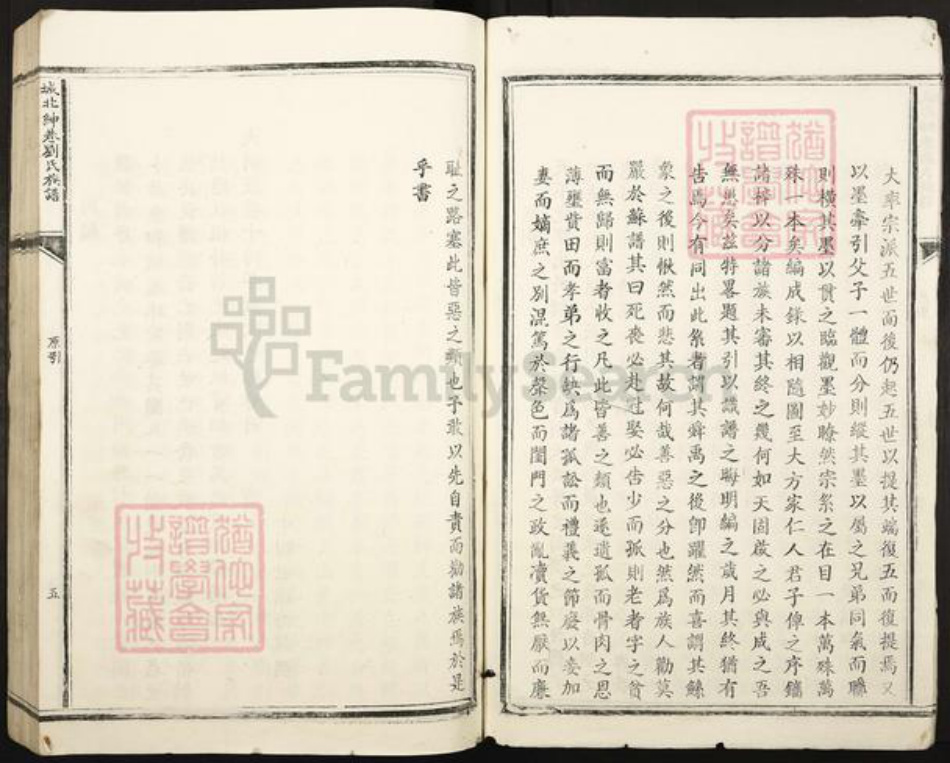 大率宗派五世而後仍起五世以提其端復五而復提焉又
以墨牽引父子一體而分則縱其墨以屬之兄弟同氣而聯
則橫其墨以貫之臨觀墨妙瞭然宗系之在目一本萬殊萬
殊一本矣編成錄以相隨圖至大方家仁人君子俾之序鐫
諸梓以分諸族未審其終之幾何如天固啟之必與成之吾
無愁矣茲特畧題其引以識譜之晦明編之歲月其終猶有
告焉今有同出此系者謂其舜禹之後卽躍然而喜謂其鯀
象之後則愀然而悲其故何哉善惡之分也然爲族人勸莫
嚴於蘇譜其曰死喪必赴冠娶必告少而孤則老者字之貧
而無歸則富者收之凡此皆善之類也遂遺孤而骨肉之恩
薄壟貲田而孝弟之行缺爲諸孤訟而禮義之節廢以妾加
妻而嫡庶之別混篤於聲色而閨門之政亂瀆貨無厭而廉
恥之路塞此皆惡之類也予敢以先自責而勸諸族焉於是
乎書
城北紳巷劉氏族譜
原引
五
猶他家譜學會收藏
猶他家譜學會收藏
FamilySearch